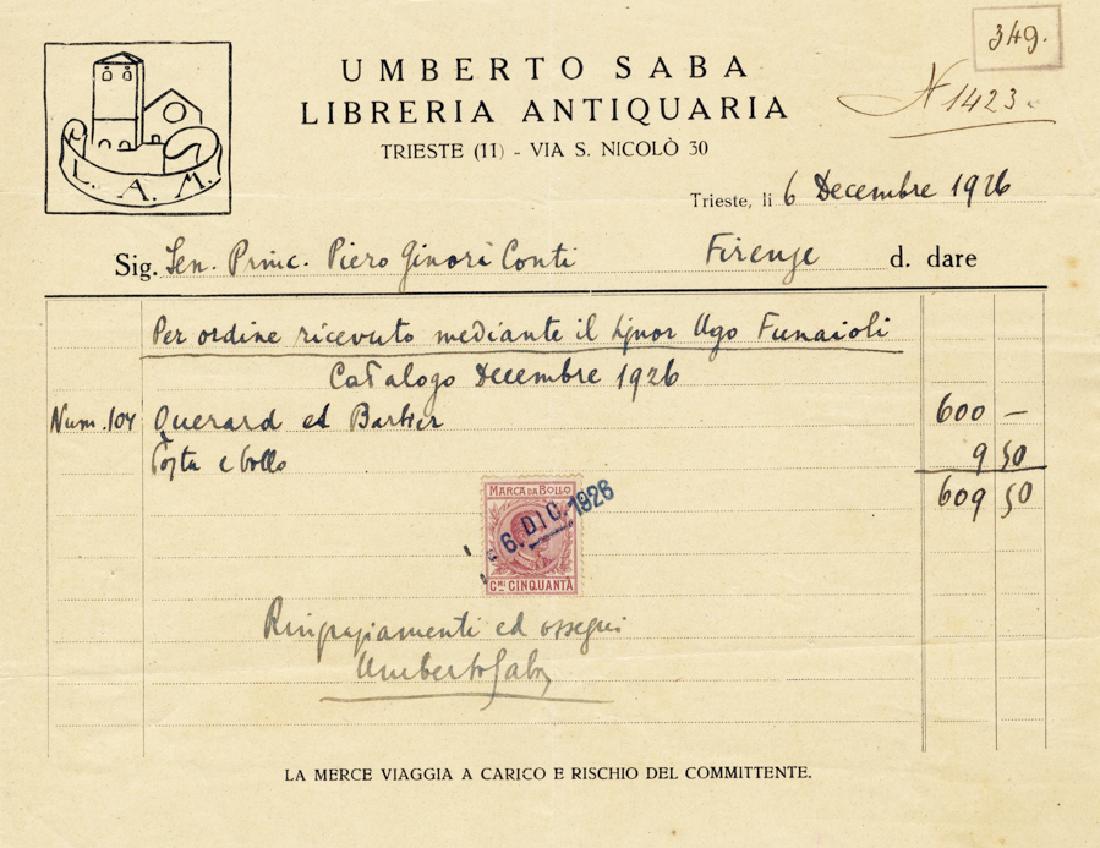 349.
UMBERTO SABA
LIBRERIA ANTIQUARIA
N 1423
TRIESTE (11) - VIA S. NICOLÒ 30
L. A. M.
Trieste, li 6 Decembre 1926
Sig. Sen. Princ. Piero Ginori Conti Firenze d. dare
Per ordine ricevuto mediante il signor Ugo Funaioli
Catalogo Decembre 1926
Num. 104 Querard ed Barbier 600 —
Posta e bollo 9 50
609 50
MARCA DA BOLLO
6. DIC. 1926
C.MI CINQUANTA
Ringraziamenti ed ossequi
Umberto Saba
LA MERCE VIAGGIA A CARICO E RISCHIO DEL COMMITTENTE.